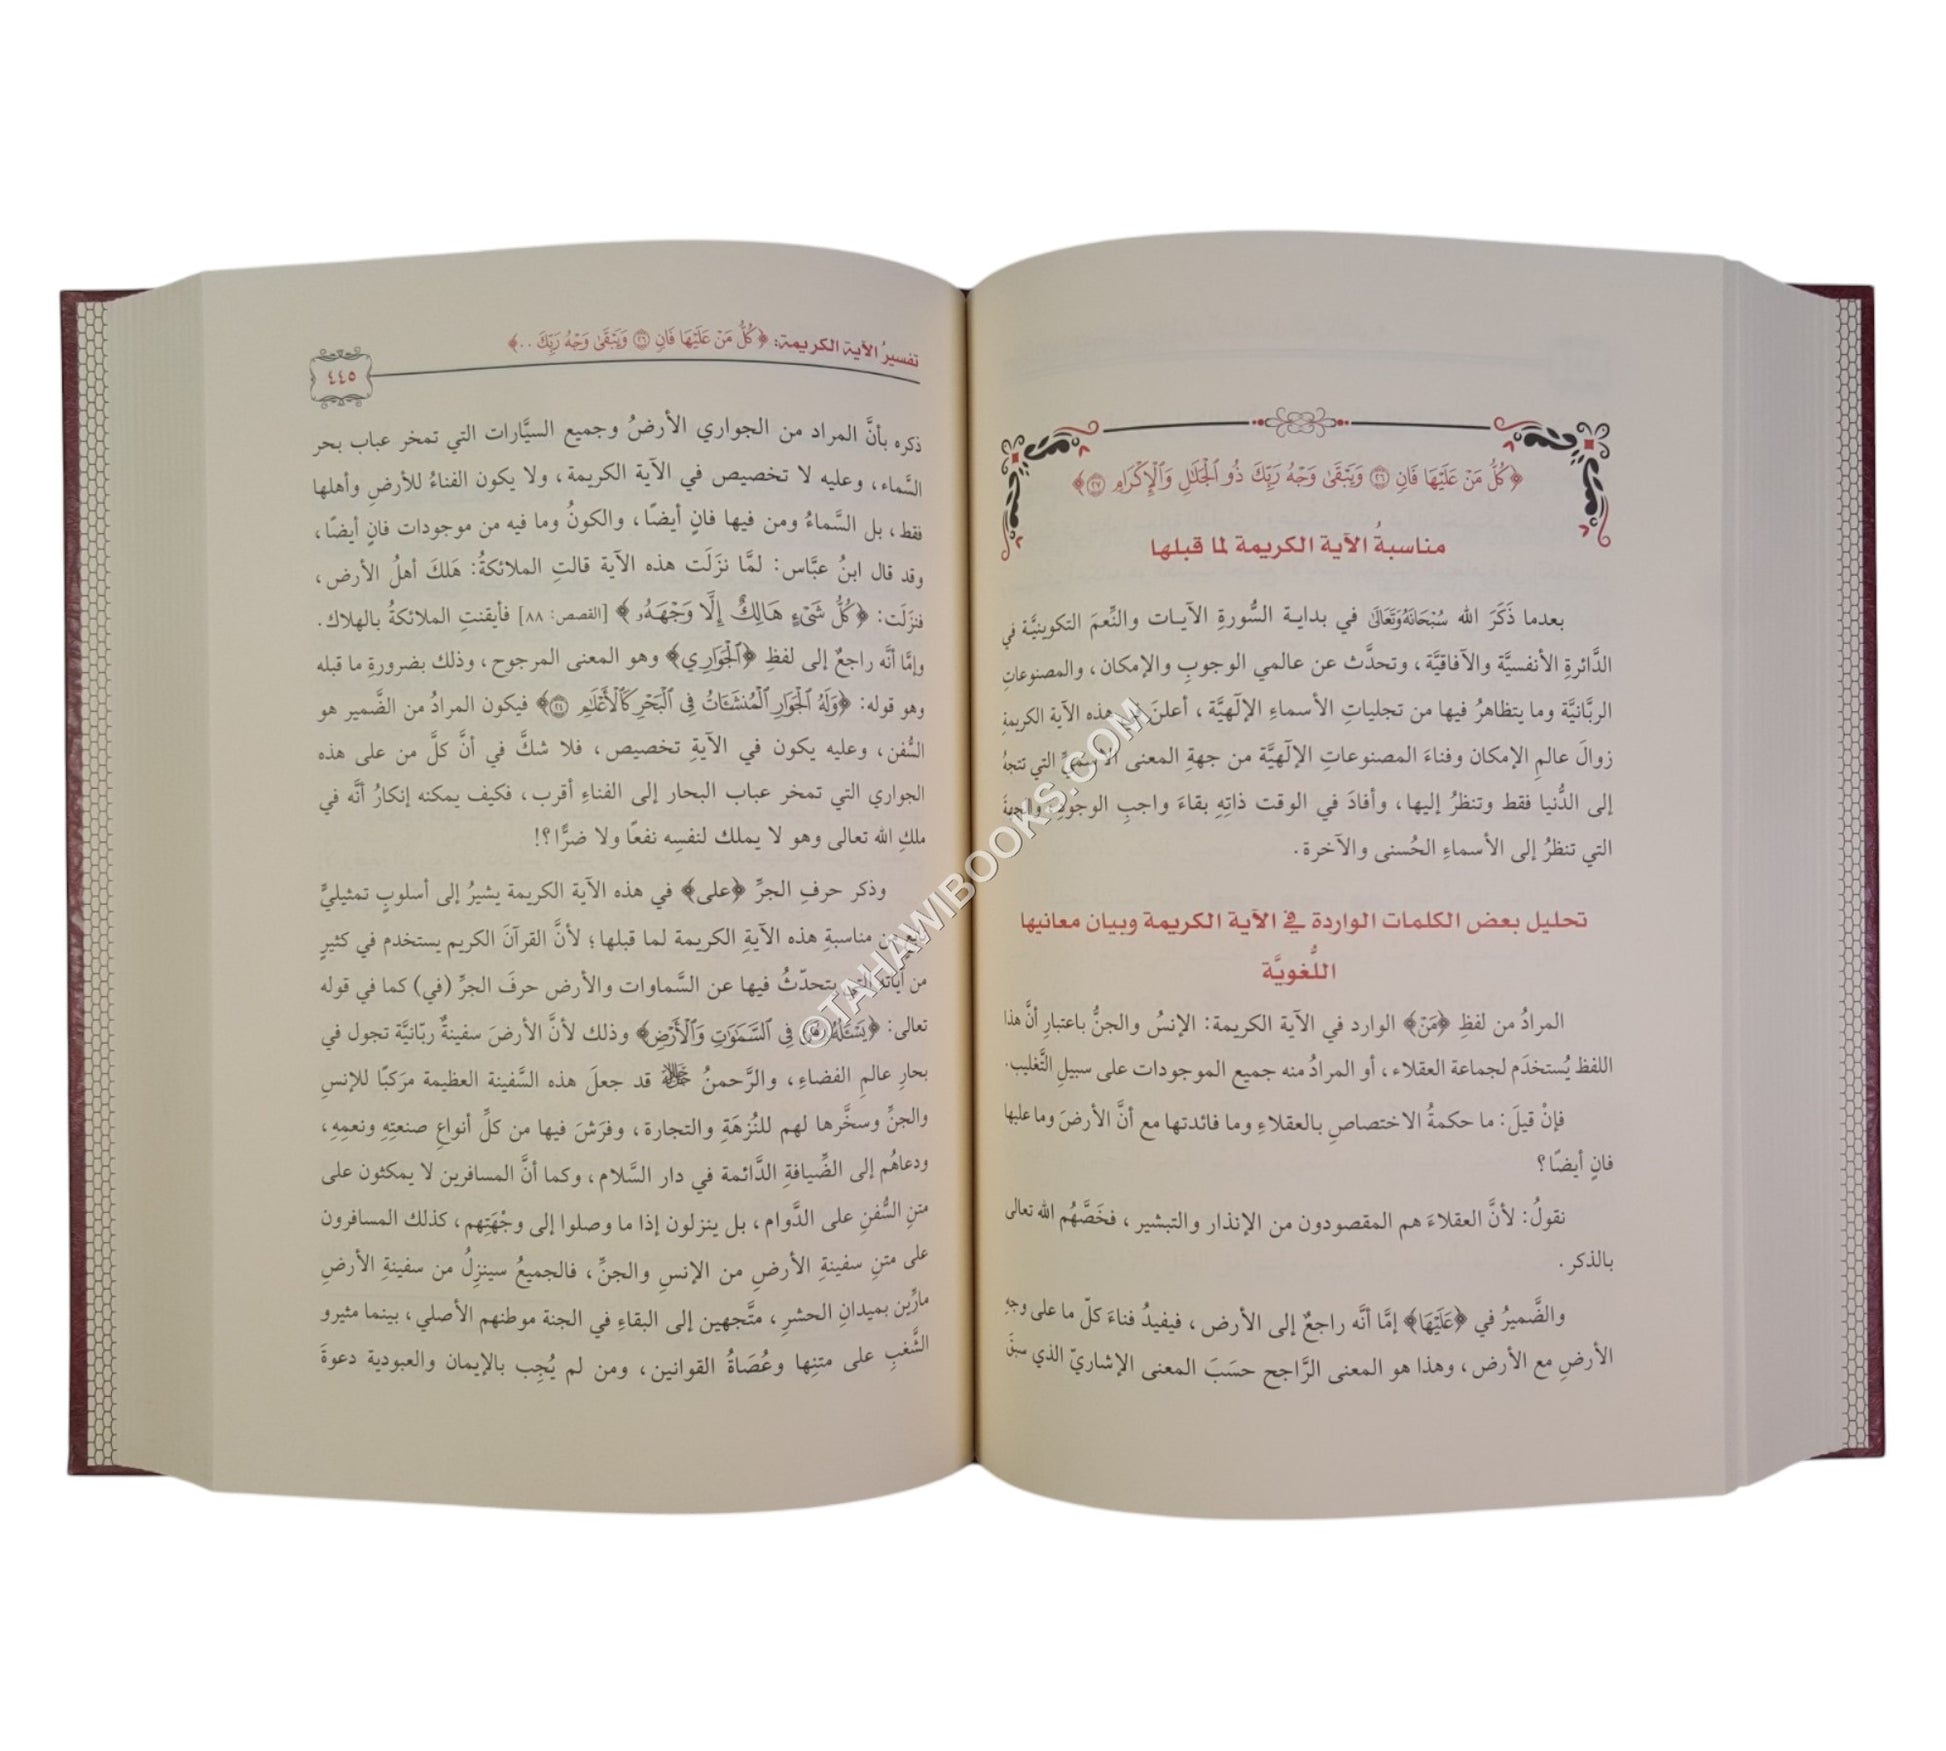 ﴿كُلُّ مَنْ عَلَيْهَا فَانٍ ۝٢٦ وَيَبْقَىٰ وَجْهُ رَبِّكَ ذُو ٱلْجَلَٰلِ وَٱلْإِكْرَامِ ۝٢٧﴾
مناسبةُ الآية الكريمة لما قبلها
بعدما ذَكَرَ الله سُبْحَانَهُ وَتَعَالَىٰ في بدايـة السُّورةِ الآيـات والنِّعمَ التكوينيَّة في
الدَّائرةِ الأنفسيَّة والآفاقيَّة، وتحدَّث عن عالمي الوجوبِ والإمكان، والمصنوعاتِ
الربَّانيَّة وما يتظاهرُ فيها من تجلياتِ الأسماءِ الإلٓهيَّة، أعلنَ في هذه الآية الكريمةِ
زوالَ عالمِ الإمكان وفناءَ المصنوعاتِ الإلٓهيَّة من جهةِ المعنى الاسميِّ التي تتجهُ
إلى الدُّنيا فقط وتنظرُ إليها، وأفادَ في الوقت ذاتِهِ بقاءَ واجبِ الوجودِ والجهةَ
التي تنظرُ إلى الأسماءِ الحُسنى والآخرة.
تحليل بعض الكلمات الواردة في الآية الكريمة وبيان معانيها
اللُّغويَّة
المرادُ من لفظِ ﴿مَنْ﴾ الوارد في الآية الكريمة: الإنسُ والجنُّ باعتبارِ أنَّ هذا
اللفظ يُستخدَم لجماعة العقلاء، أو المرادُ منه جميع الموجودات على سبيلِ التَّغليب.
فإنْ قيلَ: ما حكمةُ الاختصاصِ بالعقلاءِ وما فائدتها مع أنَّ الأرضَ وما عليها
فانٍ أيضًا؟
نقولُ: لأنَّ العقلاءَ هم المقصودون من الإنذار والتبشير، فخَصَّهُم الله تعالى
بالذكر.
والضَّميرُ في ﴿عَلَيْهَا﴾ إمَّا أنَّه راجعٌ إلى الأرض، فيفيدُ فناءَ كلّ ما على وجهِ
الأرضِ مع الأرض، وهذا هو المعنى الرَّاجح حسَبَ المعنى الإشاريّ الذي سبقَ
تفسيرُ الآية الكريمة: ﴿كُلُّ مَنْ عَلَيْهَا فَانٍ ۝٢٦ وَيَبْقَىٰ وَجْهُ رَبِّكَ ..﴾
٤٤٥
ذكره بأنَّ المراد من الجواري الأرضُ وجميع السيَّارات التي تمخر عباب بحر
السَّماء، وعليه لا تخصيص في الآية الكريمة، ولا يكون الفناءُ للأرضِ وأهلها
فقط، بل السَّماءُ ومن فيها فانٍ أيضًا، والكونُ وما فيه من موجودات فانٍ أيضًا،
وقد قال ابنُ عبَّاس: لمَّا نزَلَت هذه الآية قالتِ الملائكةُ: هَلكَ أهلُ الأرض،
فنزَلَت: ﴿كُلُّ شَىْءٍ هَالِكٌ إِلَّا وَجْهَهُۥ﴾ [القصص: ٨٨] فأيقنتِ الملائكةُ بالهلاك.
وإمَّا أنَّه راجعٌ إلى لفظِ ﴿ٱلْجَوَارِي﴾ وهو المعنى المرجوح، وذلك بضرورةِ ما قبله
وهو قوله: ﴿وَلَهُ ٱلْجَوَارِ ٱلْمُنشَـَٔاتُ فِى ٱلْبَحْرِ كَٱلْأَعْلَٰمِ ۝٢٤﴾ فيكون المرادُ من الضَّمير هو
السُّفن، وعليه يكون في الآيةِ تخصيص، فلا شكَّ في أنَّ كلَّ من على هذه
الجواري التي تمخر عباب البحار إلى الفناءِ أقرب، فكيف يمكنه إنكارُ أنَّه في
ملكِ الله تعالى وهو لا يملك لنفسِه نفعًا ولا ضرًّا؟!
وذكر حرفِ الجرِّ ﴿على﴾ في هذه الآية الكريمة يشيرُ إلى أسلوبٍ تمثيليٍّ
من مناسبةِ هذه الآيةِ الكريمة لما قبلها؛ لأنَّ القرآنَ الكريم يستخدم في كثيرٍ
من آياته التي يتحدّثُ فيها عن السَّماوات والأرض حرفَ الجرِّ (في) كما في قوله
تعالى: ﴿يَسْـَٔلُهُۥ مَن فِى ٱلسَّمَٰوَٰتِ وَٱلْأَرْضِ﴾ وذلك لأنَّ الأرضَ سفينةٌ ربّانيَّة تجول في
بحارِ عالمِ الفضاءِ، والرَّحمنُ ﷻ قد جعلَ هذه السَّفينة العظيمة مرَكبًا للإنسِ
والجنِّ وسخَّرها لهم للنُزهَةِ والتجارة، وفرَشَ فيها من كلِّ أنواعِ صنعتِهِ ونعمِهِ،
ودعاهُم إلى الضِّيافةِ الدَّائمة في دار السَّلام، وكما أنَّ المسافرين لا يمكثون على
متنِ السُّفنِ على الدَّوام، بل ينزلون إذا ما وصلوا إلى وجْهَتِهم، كذلك المسافرون
على متنِ سفينةِ الأرضِ من الإنسِ والجنِّ، فالجميعُ سينزِلُ من سفينةِ الأرضِ
مارِّين بميدانِ الحشرِ، متَّجهين إلى البقاءِ في الجنة موطنهم الأصلي، بينما مثيرو
الشَّغبِ على متنِها وعُصَاةُ القوانين، ومن لم يُجِب بالإيمان والعبودية دعوةَ
©TAHAWIBOOKS.COM